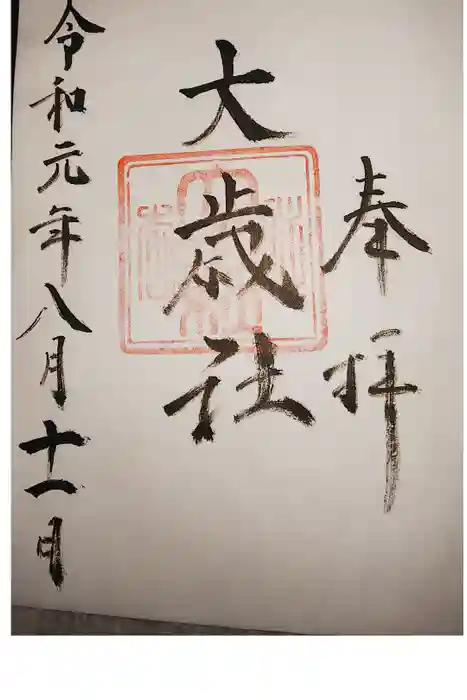 奉拝
大歳社
令和元年八月十一日